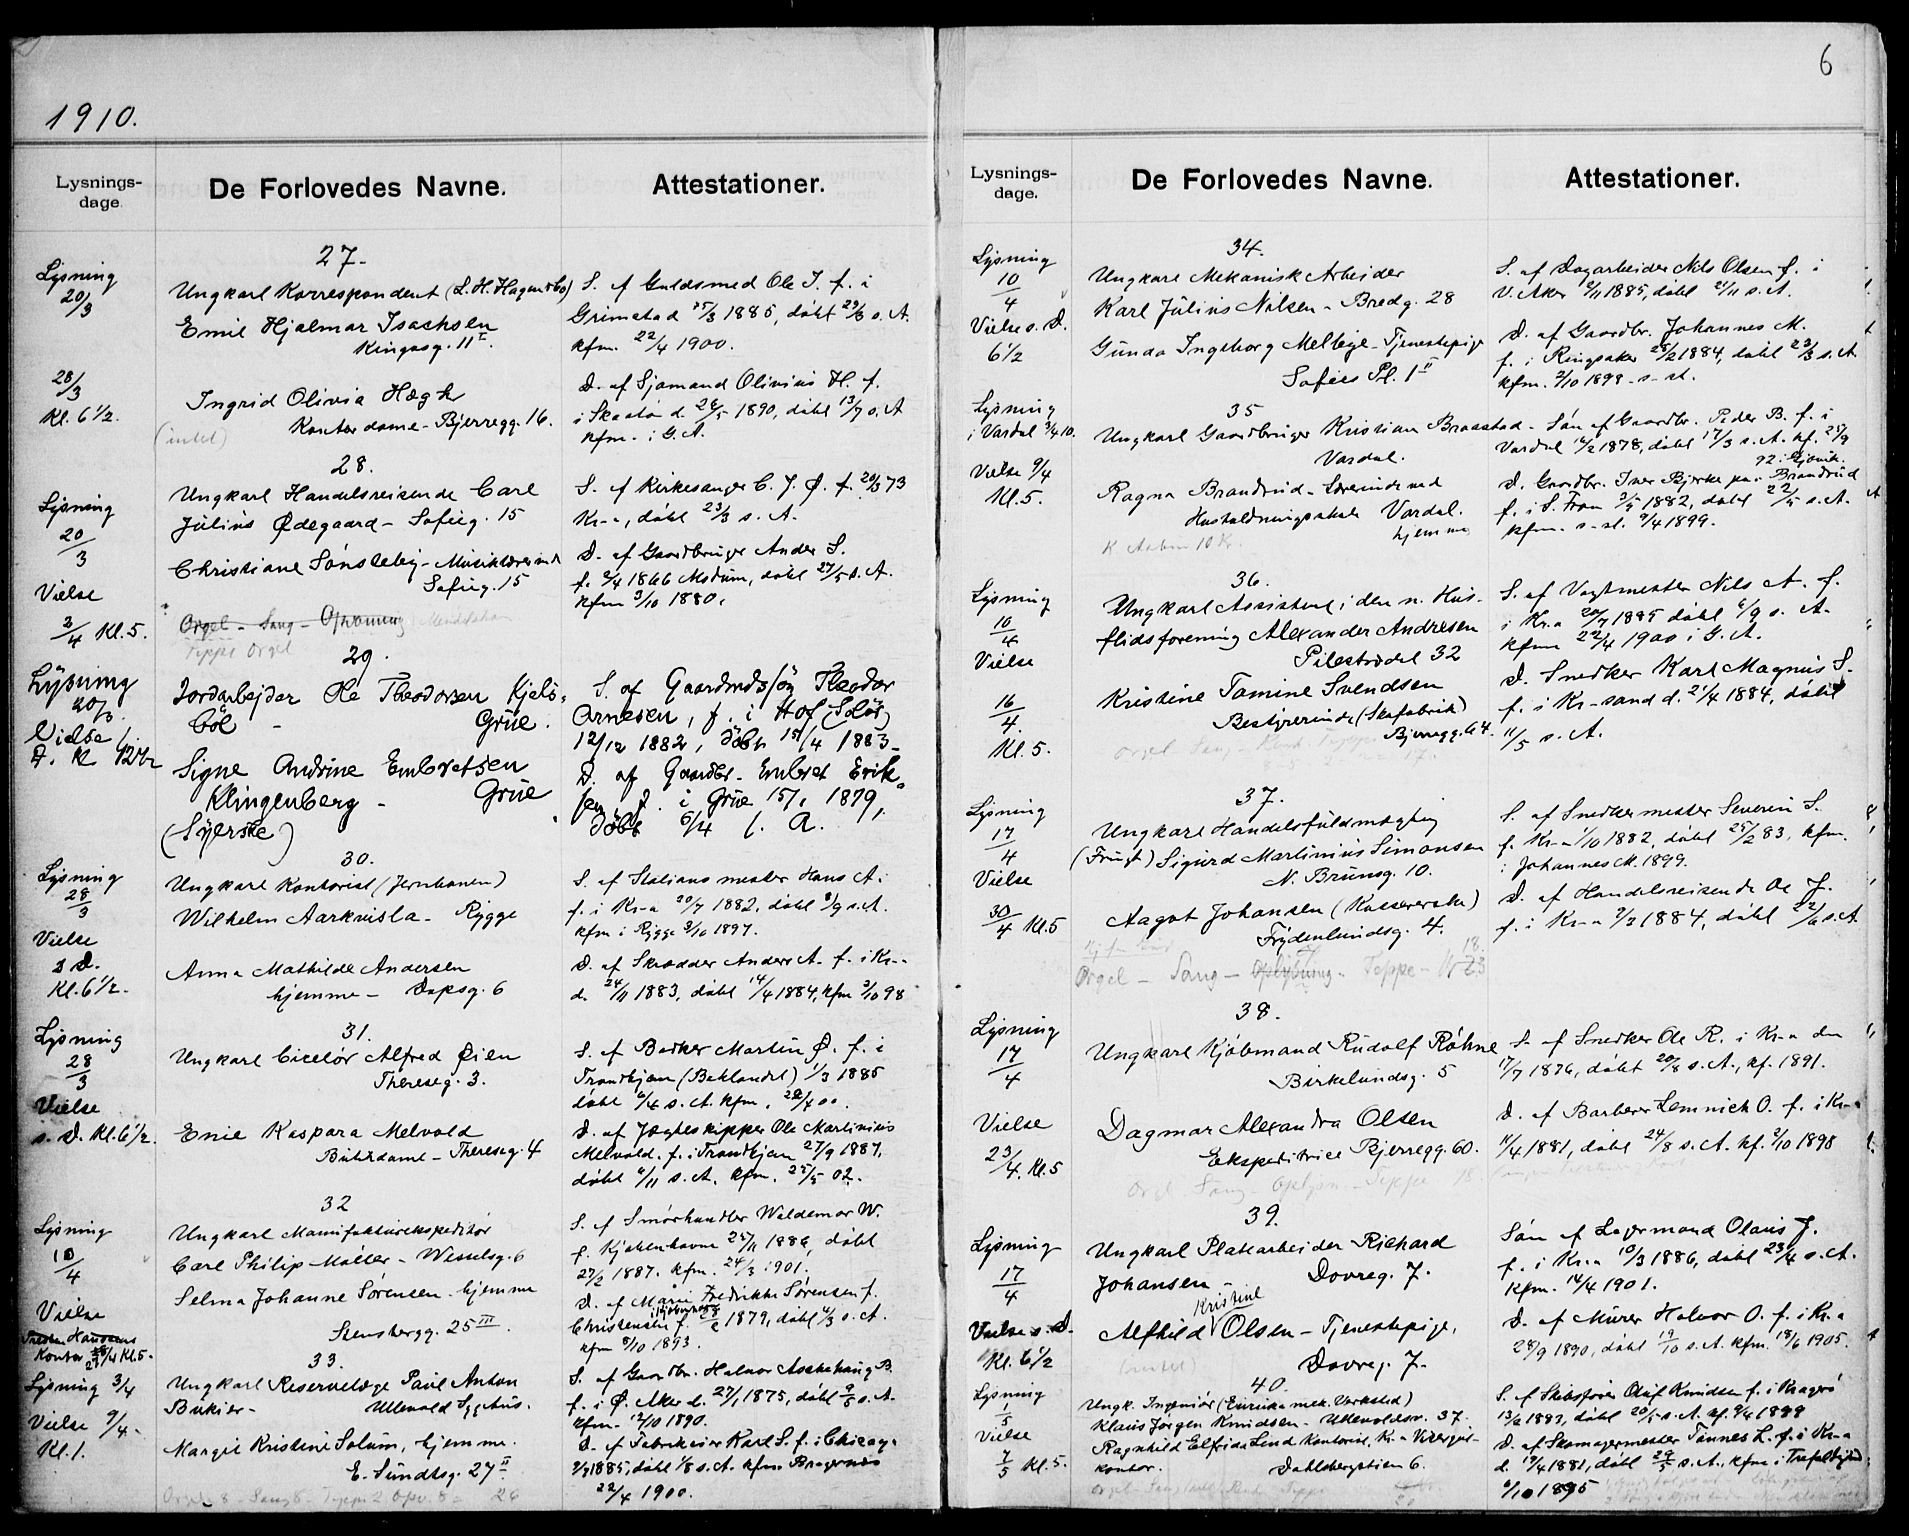 6
1910.
Lysnings-
dage.
De Forlovedes Navne.
Attestationer.
27.
Lysning
20/3
Ungkarl Korrespondent
Emil Hjalmar Isachsen
Kingosg. 11 I.
S. af Guldsmed Ole I. f. i
Grimstad 25/3 1885, døbt s. A.
kfm. 22/4 1900.
28/3
Kl. 6 1/2.
Ingrid Olivia Hægh
(intet) Kontordame - Bjerregg. 16.
D. af Sjømand Olivius H. f.
i Skaatø d. 26/5 1890, døbt 13/7 s. A
kfm. i G. A.
28.
Lysning
20/3
Ungkarl Handelsreisende Carl
Julius Ødegaard - Sofieg. 15
S. af Kirkesanger C. J. Ø. f. 73
Kr-a, døbt 23/3 s. A.
Vielse
2/4 Kl. 5.
Christiane Sønsteby - Musiklærerinde
Sofieg. 15
D. af Gaardbruger Anders S.
f. 2/4 1866 Modum, døbt 27/5 s. A.
kfm 3/10 1880.
Orgel - Sang - Opvarmning
Teppe Orgel
29.
Lysning
20/3
Vielse
Jordarbejder Ole Theodorsen Kjels-
böl - Grue.
S. af Gaardmdssøn Theodor
Arnesen, f. i Hof (Solør)
12/12 1882, döbt 15/4 1883 -
Signe Andrine Embretsen
Klingenberg - Grue
(Syerske)
D. af Gaardbr. Embret Erik-
sen, f. i Grue 15/1 1879,
döbt 6/4 s. A.
30.
Lysning
28/3
Ungkarl Kontorist (Jernbanen)
Wilhelm Aarkvisla - Rygge
S. af Stationsmester Hans A.
f. i Kr-a 20/7 1882, døbt 8/9 s. A.
kfm i Rygge 3/10 1897.
Vielse
s. D.
Kl. 6 1/2.
Anna Mathilde Andersen
hjemme - Dopsg. 6
D. af Skrædder Anders A. f. i Kr-a
d. 24/11 1883, døbt 14/4 1884, kfm 2/10 98
31.
Lysning
28/3
Ungkarl Ciselør Alfred Øien
Thereseg. 3.
S. af Bødker Martin Ø. f. i
Trondhjem (Baklandet) 1/3 1885
døbt 6/4 s. A. kfm. 00.
Vielse
s. D. Kl. 6 1/2.
Enie Kaspara Melvold
Butikdame - Thereseg. 4
D. af Jægteskipper Ole Martinius
Melvold, f. i Trondhjem 27/9 1887,
døbt 6/11 s. A. kfm. 25/5 02.
32
Lysning
10/4
Ungkarl Manufakturekspeditør
Carl Philip Møller - Wesselsg. 6
S. af Smørhandler Waldemar W.
f. Kjøbenhavn 25/11 1886, døbt
27/2 1887. kfm. 24/3 1901.
Vielse
Kontor 27/4 Kl. 5.
Selma Johanne Sørensen - hjemme
Stensbergg. 25 III.
D. af Marie Fredrikke Sørensen f.
Christensen f. 1879, døbt 4/3 s. A.
kfm 8/10 1893.
33.
Lysning 3/4
Vielse 9/4 -
Kl. 1.
Ungkarl Reservelæge Paul Anton
Bukier - Ullevold Sygehus.
S. af Gaardbr. Halvor Aschehaug B.
f. i Ø. Aker d. 27/1 1875, døbt 9/5 s. A.
kfm. 12/10 1890.
Margit Kristine Solum, hjemme.
E. Sundtsg. 27 II
D. af Fabrikeier Karl S. f. i Chicago
1885, døbt 1/8 s. A. kfm. Bragernes
22/4 1900.
Lysnings-
dage.
De Forlovedes Navne.
Attestationer.
34.
Lysning
10/4
Vielse s. D.
6 1/2
Ungkarl Mekanisk Arbeider
Karl Julius Nilsen - Bredg. 28
S. af Dagarbeider Nils Olsen f. i
V. Aker 1885, døbt s. A.
Gunda Ingeborg Melbye - Tjenestepige
Sofies Pl. 1 II
D. af Gaardbr. Johannes M.
f. i Ringsaker 28/2 1884, døbt 23/3 s. A
kfm. 2/10 1898 s. st.
35
Lysning
i Vardal 3/4 10.
Vielse 9/4
Kl. 5.
Ungkarl Gaardbruger Kristian Braastad -
Vardal.
Søn af Gaardbr. Peder B. f. i
Vardal 14/2 1878, døbt 17/3 s. A. kf. 25/9
92 i Gjøvik.
Ragna Brandrud - Lærerinde ved
Husholdningsskole Vardal.
hjemme
D. Gaardbr. Iver Bjerke paa Brandrud
f. i S. Fron 3/5 1882, døbt 22/5 s. A.
kfm. s. st. 9/4 1899.
36.
Lysning
10/4
Vielse
16/4.
Kl. 5.
Ungkarl Assistent i den n. Hus-
flidsforening Alexander Andresen
Pilestrædet 32
S. af Vagtmester Nils A. f.
i Kr.a 20/7 1885 døbt 6/9 s. A.
kfm 22/4 1900 i G. A.
Kristine Tomine Svendsen
Bestyrerinde (Skofabrik)
Bjerregg. 64.
D. Snedker Karl Magnus S.
f. i Kr-sand d. 21/4 1884, døbt
11/5 s. A.
37.
Lysning
17/4
Vielse
30/4 Kl. 5
Ungkarl Handelsfuldmægtig
(Frugt) Sigurd Martinius Simonsen
N. Brunsg. 10.
S. af Snedkermester Severin S.
f. Kr-a 1/10 1882, døbt 25/2 83, kfm.
i Johannes M. 1899.
Aagot Johansen (Kassererske)
Frydenlundsg. 4.
D. af Handelsreisende Ole J.
f. i Kr-a 1884, døbt 22/6 s. A
Orgel - Sang - Oplysning - Teppe -
38.
Lysning
17/4
Vielse
23/4. Kl. 5
Ungkarl Kjøbmand Rudolf Røhne
Birkelundsg. 5
S. af Snedker Ole R. i Kr-a den
17/7 1876, døbt 20/8 s. A., kf. 1891.
Dagmar Alexandra Olsen
Ekspeditrice Bjerregg. 60.
D. af Barberer Lemnich O. f. i Kr-a
11/4 1881, døbt 24/8 s. A. kf. 2/10 1898
39.
Lysning
17/4
Vielse s. D.
Kl. 6 1/2
Ungkarl Platearbeider Richard
Johansen - Dovreg. 7.
Søn af Lagermand Olaus J.
f. i Kr.a 10/3 1886, døbt 23/4 s. A.
kfm. 14/4 1901.
Kristine
Alfhild Olsen - Tjenestepige,
(intet) Dovreg. 7.
D. af Murer Halvor O. f. i Kr.a
28/9 1890, døbt 19/10 s. A. kfm. 18/6 1905.
40.
Lysning
1/5
Vielse
7/5 Kl. 5.
Ungk. Ingeniør (Eureka mek. Verksted)
Klaus Jørgen Knudsen - Ullevoldsv. 37.
S. af Skibsfører Oluf Knudsen f. i Kragerø
13/2 1883, døbt 20/5 s. A. kf. 9/4 1899
Ragnhild Elfrida Lund Kontorist, Kr.a
kontor. Dahlsbergstien 6.
D. af Skomagermester Tønnes L. f. i Kr-a
d. 17/4 1881, døbt 29/5 s. A., kfm i Trefoldighed
6/10 1895